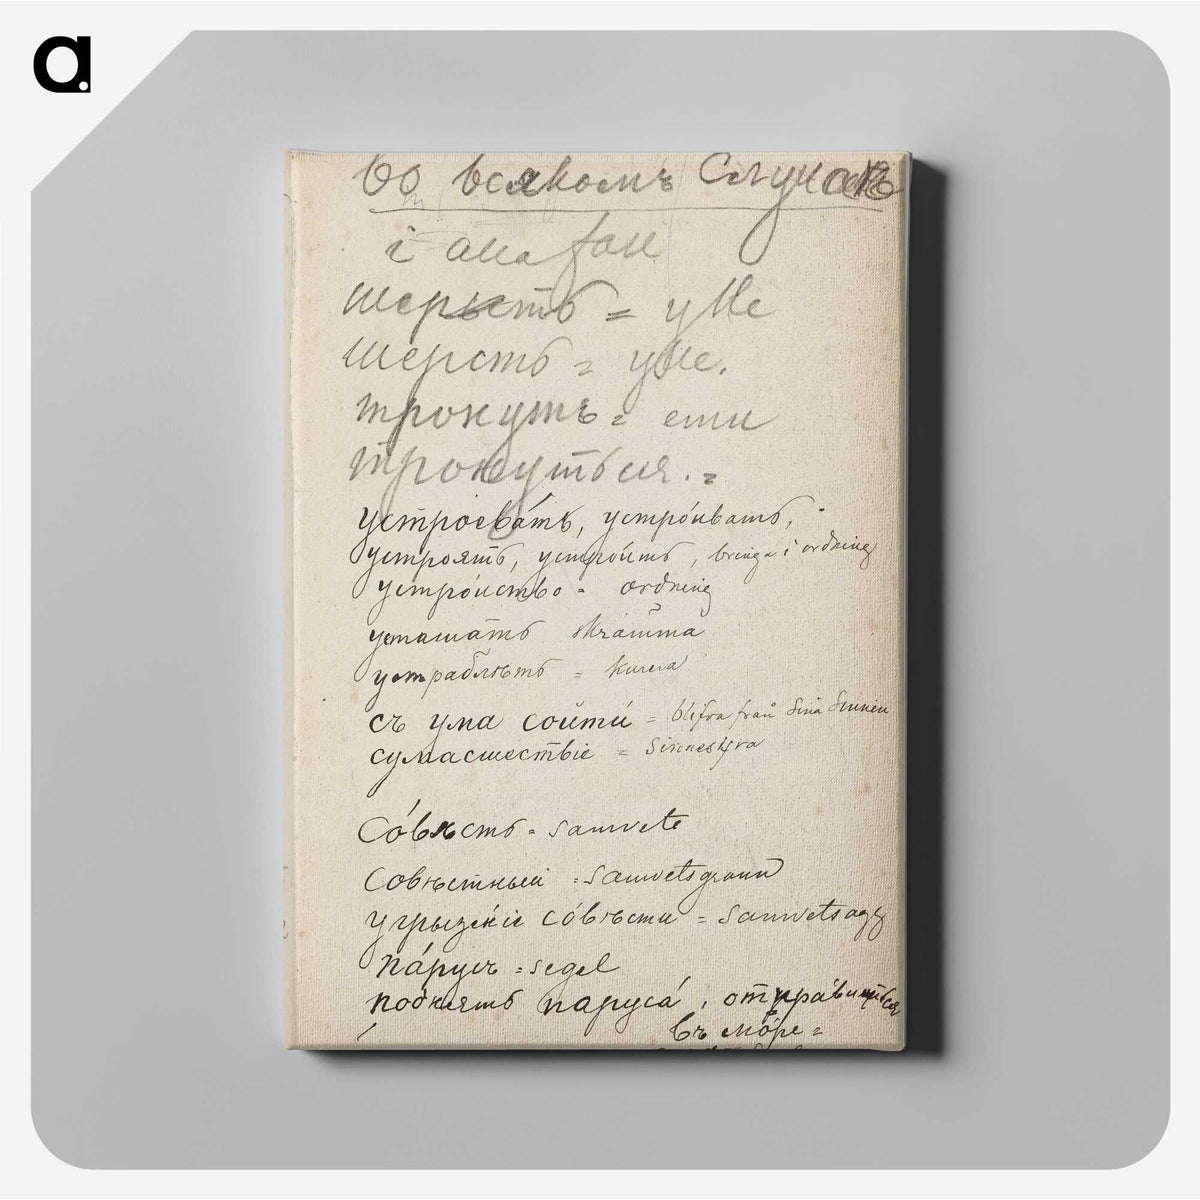 a.
Во всякомъ случаѣ
i alla fall
шерсть = улле
шерсть = улле.
тронуть =
тронуться. =
устроевáть, устрóивать,
устроять, устрóить, bringa i ordning
устрóиство = ordning
устрашáть skrämma
съ ума сойти́ = blifva från sina sinnen
сумасшествіе =
Сóвѣсть = samvete
Совѣстный = samvetsgrann
угрызéніе сóвѣсти = samvetsagg
пáрусъ = segel
поднять парусá, отпрáвиться
въ мóре =